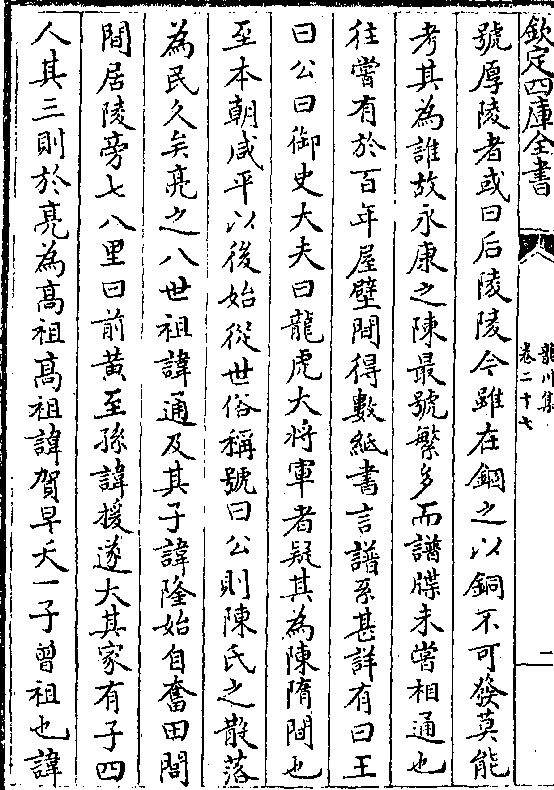 欽定四庫全書
龍川集
卷二十七
二
號厚陵者或曰后陵陵今雖在錮之以銅不可發莫能
考其為誰故永康之陳最號繁多而譜牒未嘗相通也
往嘗有於百年屋壁間得數紙書言譜系甚詳有曰王
曰公曰御史大夫曰龍虎大將軍者疑其為陳隋間也
至本朝咸平以後始從世俗稱號曰公則陳氏之散落
為民久矣亮之八世祖諱通及其子諱隆始自奮田間
間居陵旁七八里曰前黄至孫諱援遂大其家有子四
人其三則於亮為髙祖髙祖諱賀早夭一子曾祖也諱